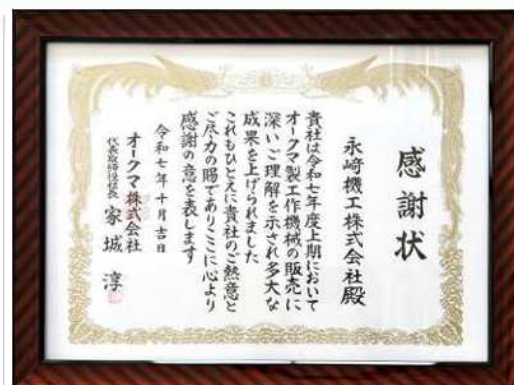 感謝状
永﨑機工株式会社殿
貴社は令和七年度上期において
オークマ製工作機械の販売に
深いご理解を示され多大な
成果を上げられました
これもひとえに貴社のご熱意と
ご尽力の賜でありここに心より
感謝の意を表します
令和七年十月吉日
オークマ株式会社
代表取締役社長 家城淳